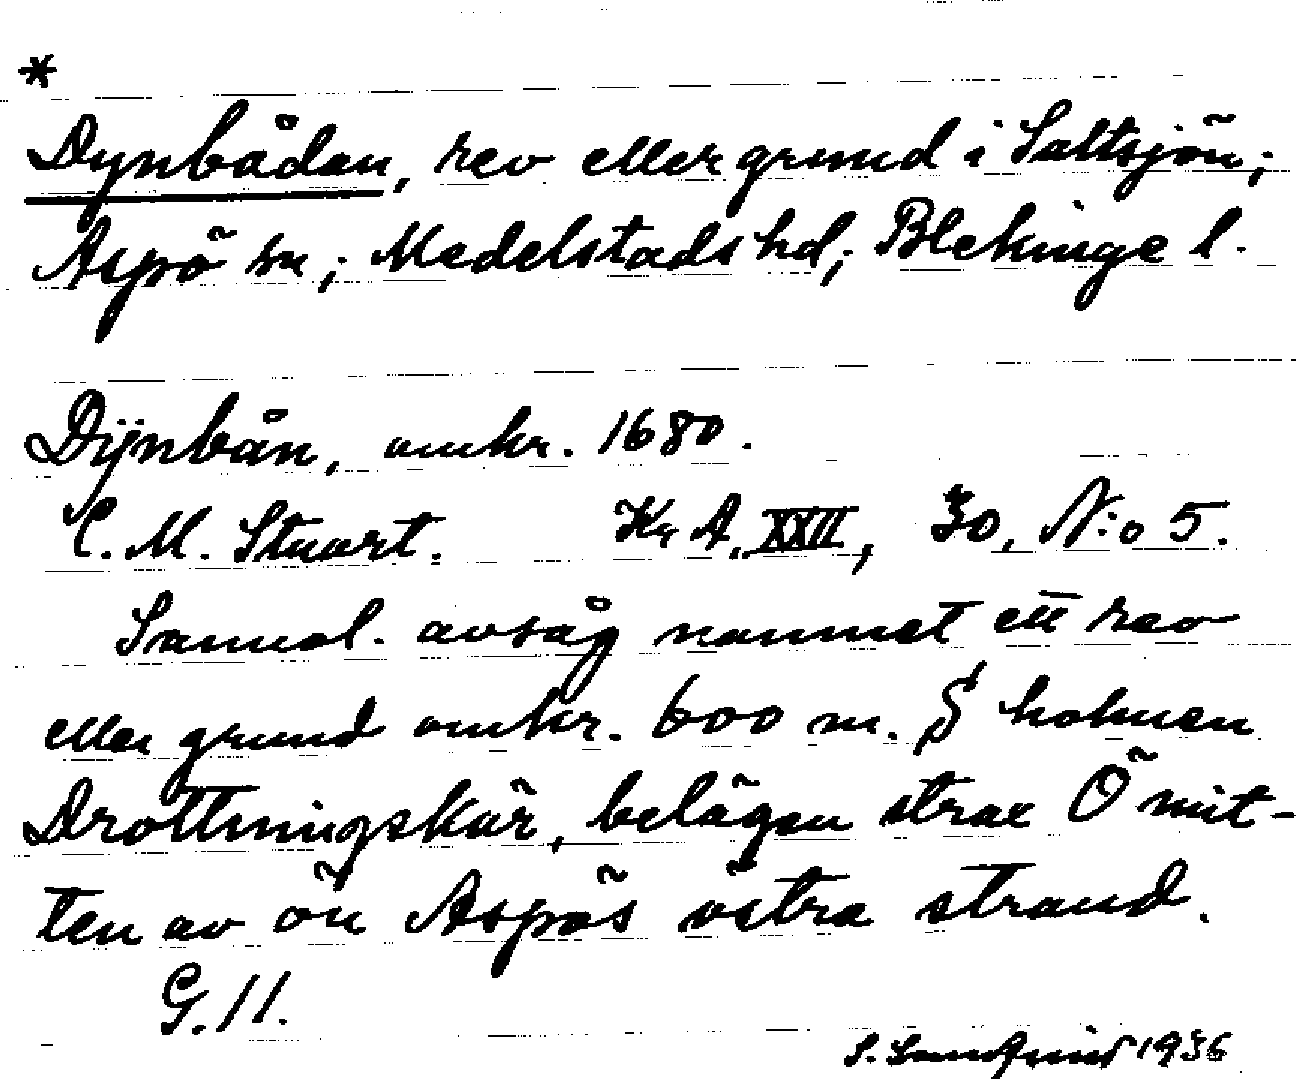 *
Dynbådan, rev eller grund i Saltsjön;
Aspö sn; Medelstads hd; Blekinge l.
Dÿnbån, omkr. 1680.
C. M. Stuart. Kr A. XXII, 30, N:o 5.
Sannol. avsåg namnet ett rev
eller grund omkr. 600 m. S holmen
Drottningskär, belägen strax Ö mit-
ten av ön Aspös östra strand.
G. 11.
1936